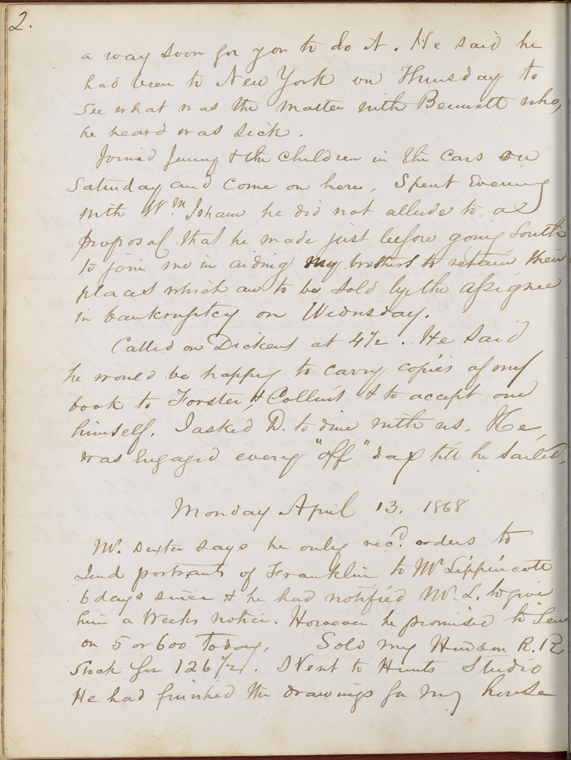 2.
a way soon for you to do it. He said he
had been to New York on Thursday to
see what was the matter with Bennett who,
he heard was sick.
Joined Jenny & the children in the cars on
Saturday and come on here. Spent Evening
with Wm Isham he did not allude to a
proposal that he made just before going South
to join me in aiding my brothers to retain their
places which are to be sold by the assignee
in bankruptcy on Wednsday.
Called on Dickens at 4½. He said
he would be happy to carry copies of my
book to Forster & Collins & to accept one
himself. I asked D. to dine with us. He
was Engaged every "off" day till he sailed.
Monday April 13. 1868
Mr. Dexter says he only recd. orders to
send portraits of Franklin to Mr Lippincott
6 days since & he had notified Mr. L. to give
him a Weeks notice. However he promised to Send
on 5 or 600 Today. Sold my Hudson R. R
Stock for 126½. Went to Hunts Studio
He had finished the drawings for my house